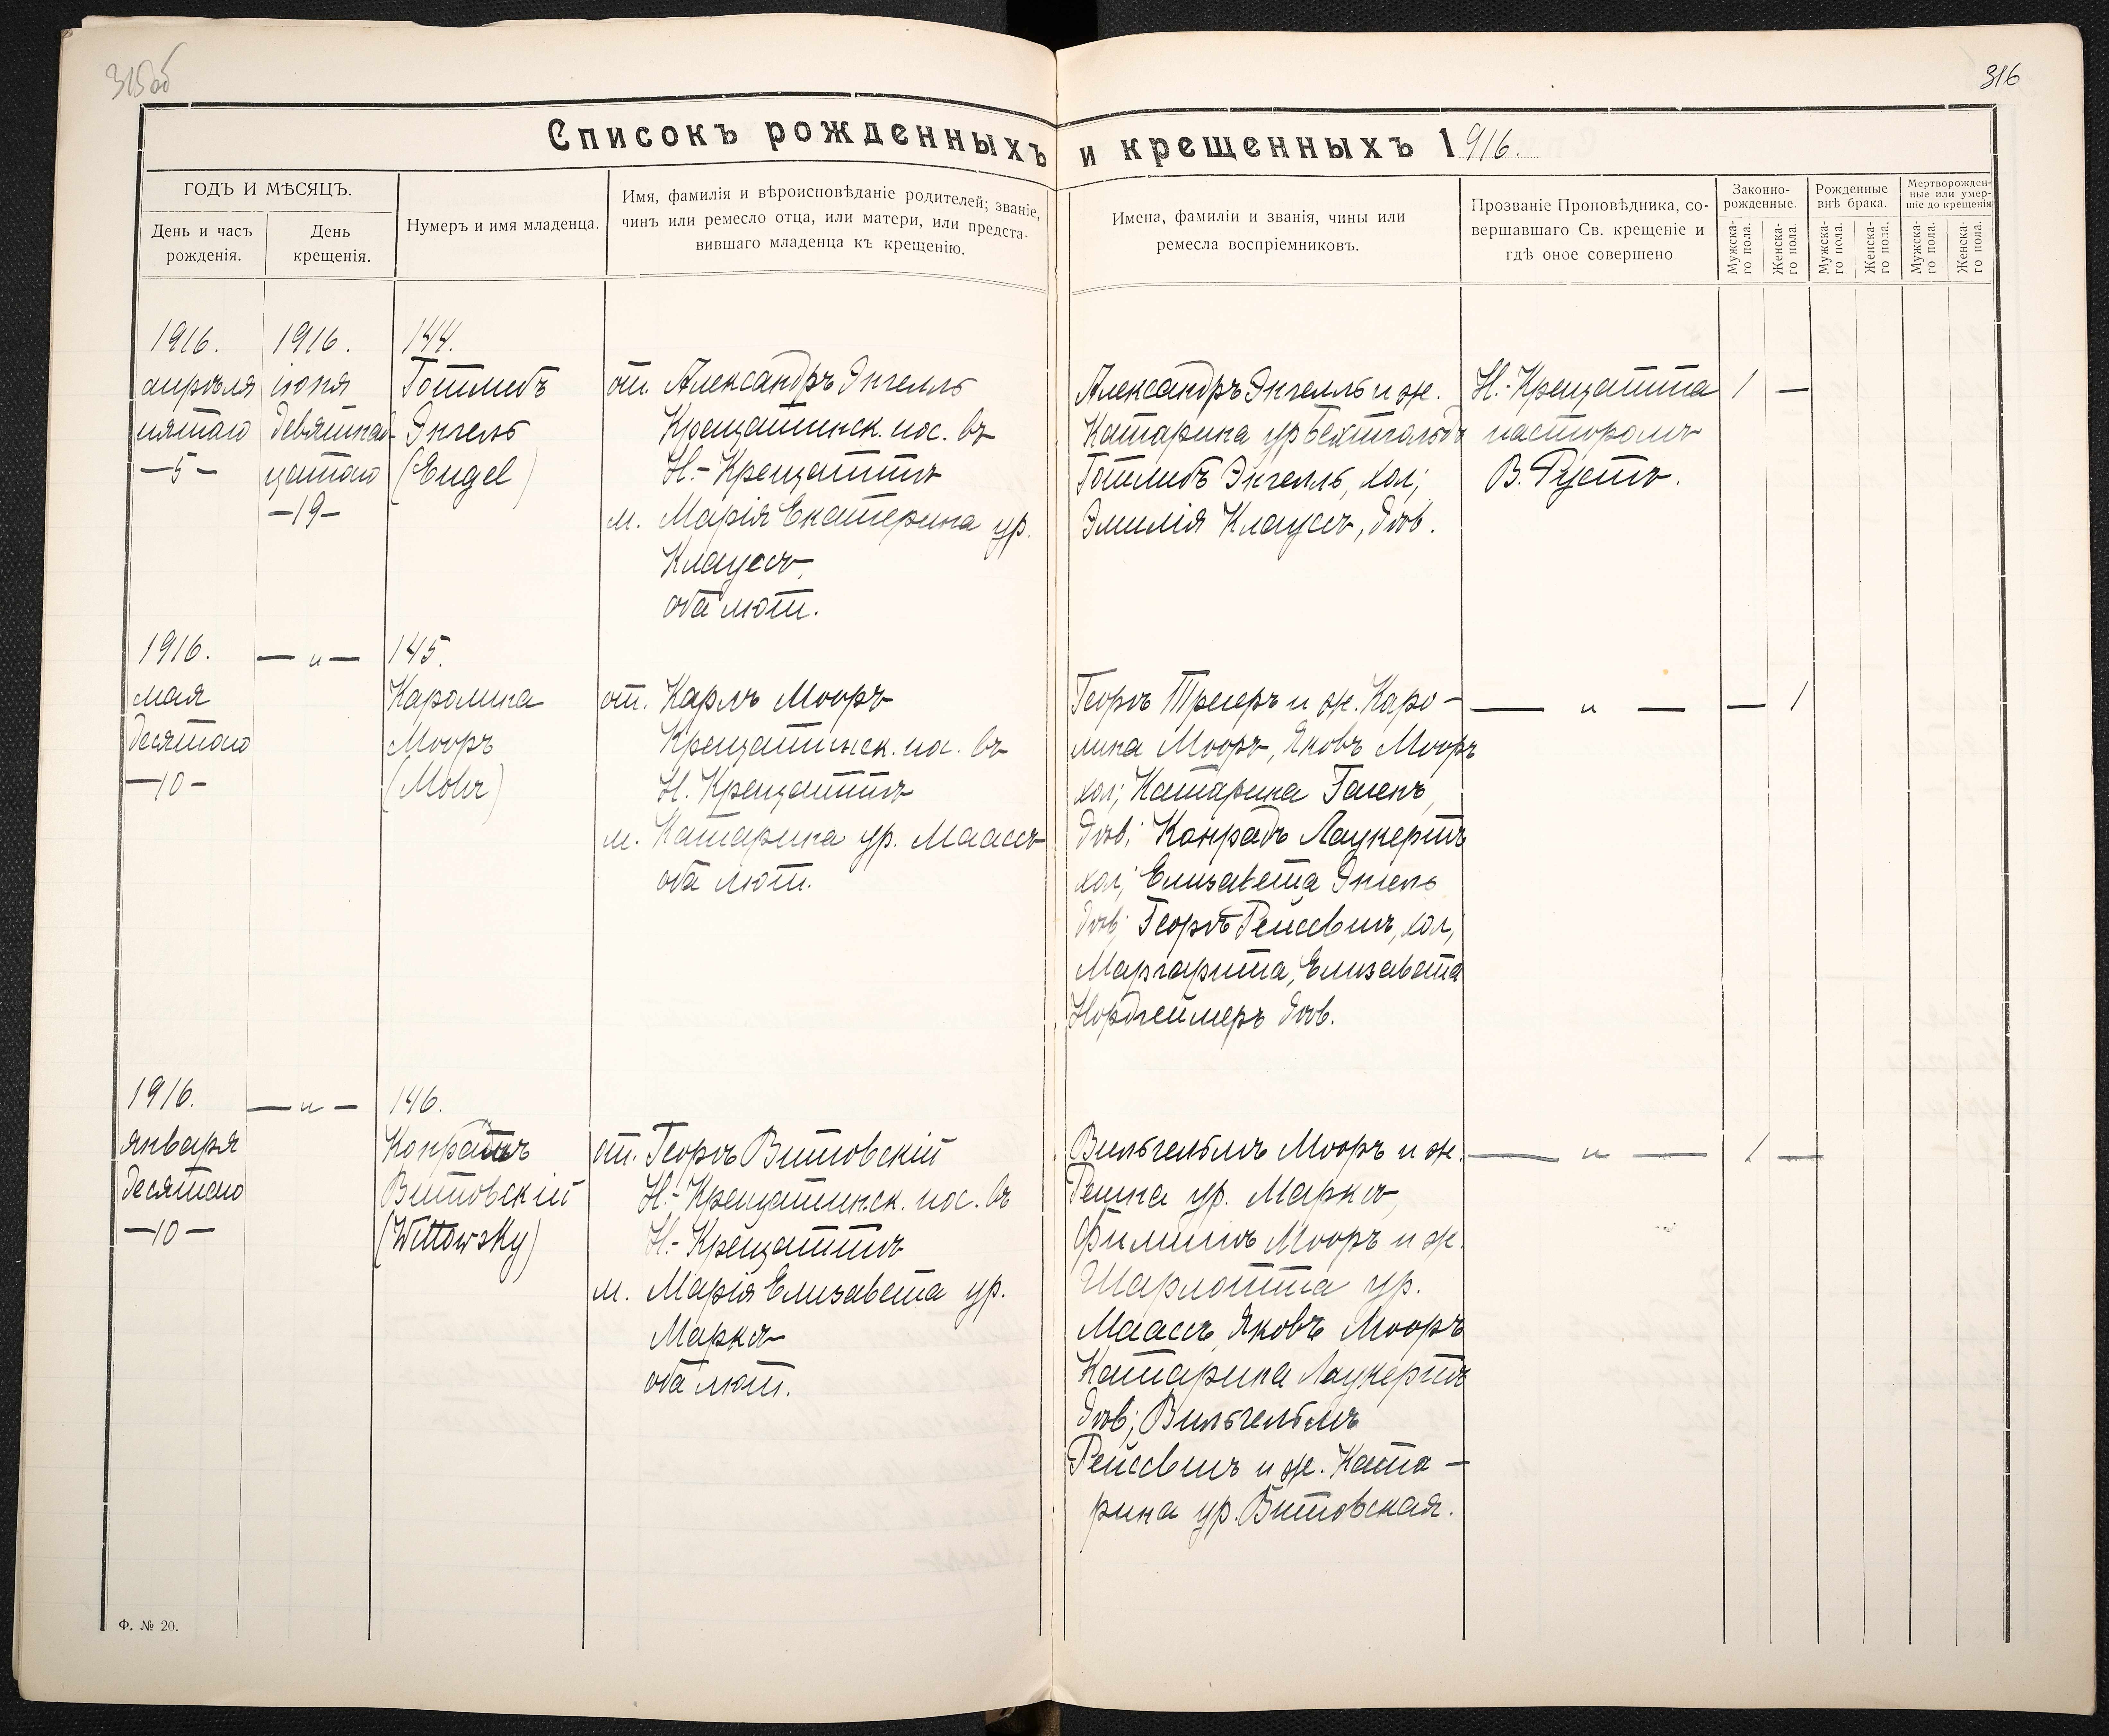 315об
316
Списокъ рожденныхъ и крещенныхъ 1916.
ГОДЪ И МѢСЯЦЪ.
День и часъ
рожденія.
День
крещенія.
Нумеръ и имя младенца.
Имя, фамилія и вѣроисповѣданіе родителей; званіе,
чинъ или ремесло отца, или матери, или предста-
вившаго младенца къ крещенію.
Имена, фамиліи и званія, чины или
ремесла воспріемниковъ.
Прозваніе Проповѣдника, со-
вершавшаго Св. крещеніе и
гдѣ оное совершено
Законно-
рожденные.
Рожденные
внѣ брака.
Мертворожден-
ные или умер-
шіе до крещенія
Мужска-
го пола.
Женска-
го пола.
Мужска-
го пола.
Женска-
го пола.
Мужска-
го пола.
Женска-
го пола.
1916.
апрѣля
пятаго
—5—
1916.
іюня
девятнад-
цатаго
—19—
144.
Готлибъ
Энгель
(Engel)
от. Александръ Энгелль
Крещатинск. пос. въ
Н.-Крещаттъ
м. Марія Екатерина ур.
Клауссъ,
оба лют.
Александръ Энгелль и ж.
Катарина ур
Готлибъ Энгелль, хол;
Эмилія Клауссъ, дѣв.
Н.-Крещатта
пасторомъ
В. Густъ.
1 —
1916.
мая
десятаго
—10—
— „ —
145.
Каролина
Мооръ
(Mohr)
от. Карлъ Мооръ
Крещатинск. пос. въ
Н. Крещаттъ
м. Катарина ур. Маассъ
оба лют.
Георгъ Трегеръ и ж. Каро-
лина Мооръ, Яковъ Мооръ
хол; Катарина
дѣв; Конрадъ Лаукертъ
хол; Елизавета Энгель
дѣв; Георгъ Рейсвихъ, хол;
Маргарита, Елизавета
Нордгеймеръ дѣв.
— „ —
— 1
1916.
января
десятаго
—10—
— „ —
146.
Конратъ
Витовскій
(Wittowsky)
от. Георгъ Витовскій
Н.-Крещатинск. пос. въ
Н.-Крещаттъ
м. Марія Елизавета ур.
Марксъ
оба лют.
Вильгельмъ Мооръ и ж.
ур. Марксъ,
Филиппъ Мооръ и ж.
Шарлотта ур.
Маассъ, Яковъ Мооръ
Катарина Лаукертъ
дѣв; Вильгельмъ
Рейсвихъ и ж. Ката-
рина ур. Витовская.
— „ —
1 —
Ф. № 20.